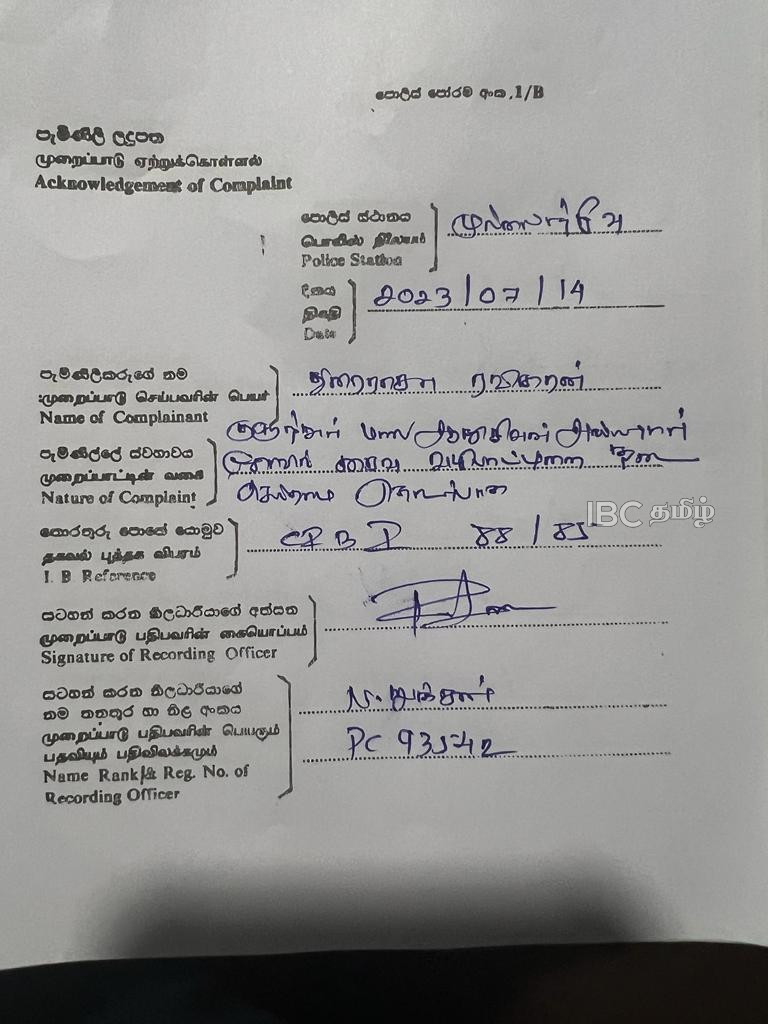 පොලිස් පෝරම අංක .1/B
පැමිණිලි ලදුපත
முறைப்பாடு ஏற்றுக்கொள்ளல்
Acknowledgement of Complaint
පොලිස් ස්ථානය
பொலிஸ் நிலையம்
Police Station
முல்லைத்தீவு
දිනය
திகதி
Date
2023/07/14
පැමිණිලිකරුගේ නම
முறைப்பாடு செய்பவரின் பெயர்
Name of Complainant
துரைராசா ரவிகரன்
පැමිණිල්ලේ ස්වභාවය
முறைப்பாட்டின் வகை
Nature of Complaint
குருந்தூர் மலை ஆதிசிவன் அய்யனார்
சைவ வழிபாட்டினை தடை
தொடர்பாக
IBC தமிழ்
තොරතුරු පොතේ යොමුව
தகவல் புத்தக விபரம்
I. B. Reference
88/85
සටහන් කරන නිලධාරියාගේ අත්සන
முறைப்பாடு பதிபவரின் கையொப்பம்
Signature of Recording Officer
සටහන් කරන නිලධාරියාගේ
නම තනතුර හා නිල අංකය
முறைப்பாடு பதிபவரின் பெயரும்
பதவியும் பதிவிலக்கமும்
Name Rank & Reg. No. of
Recording Officer
PC 93542